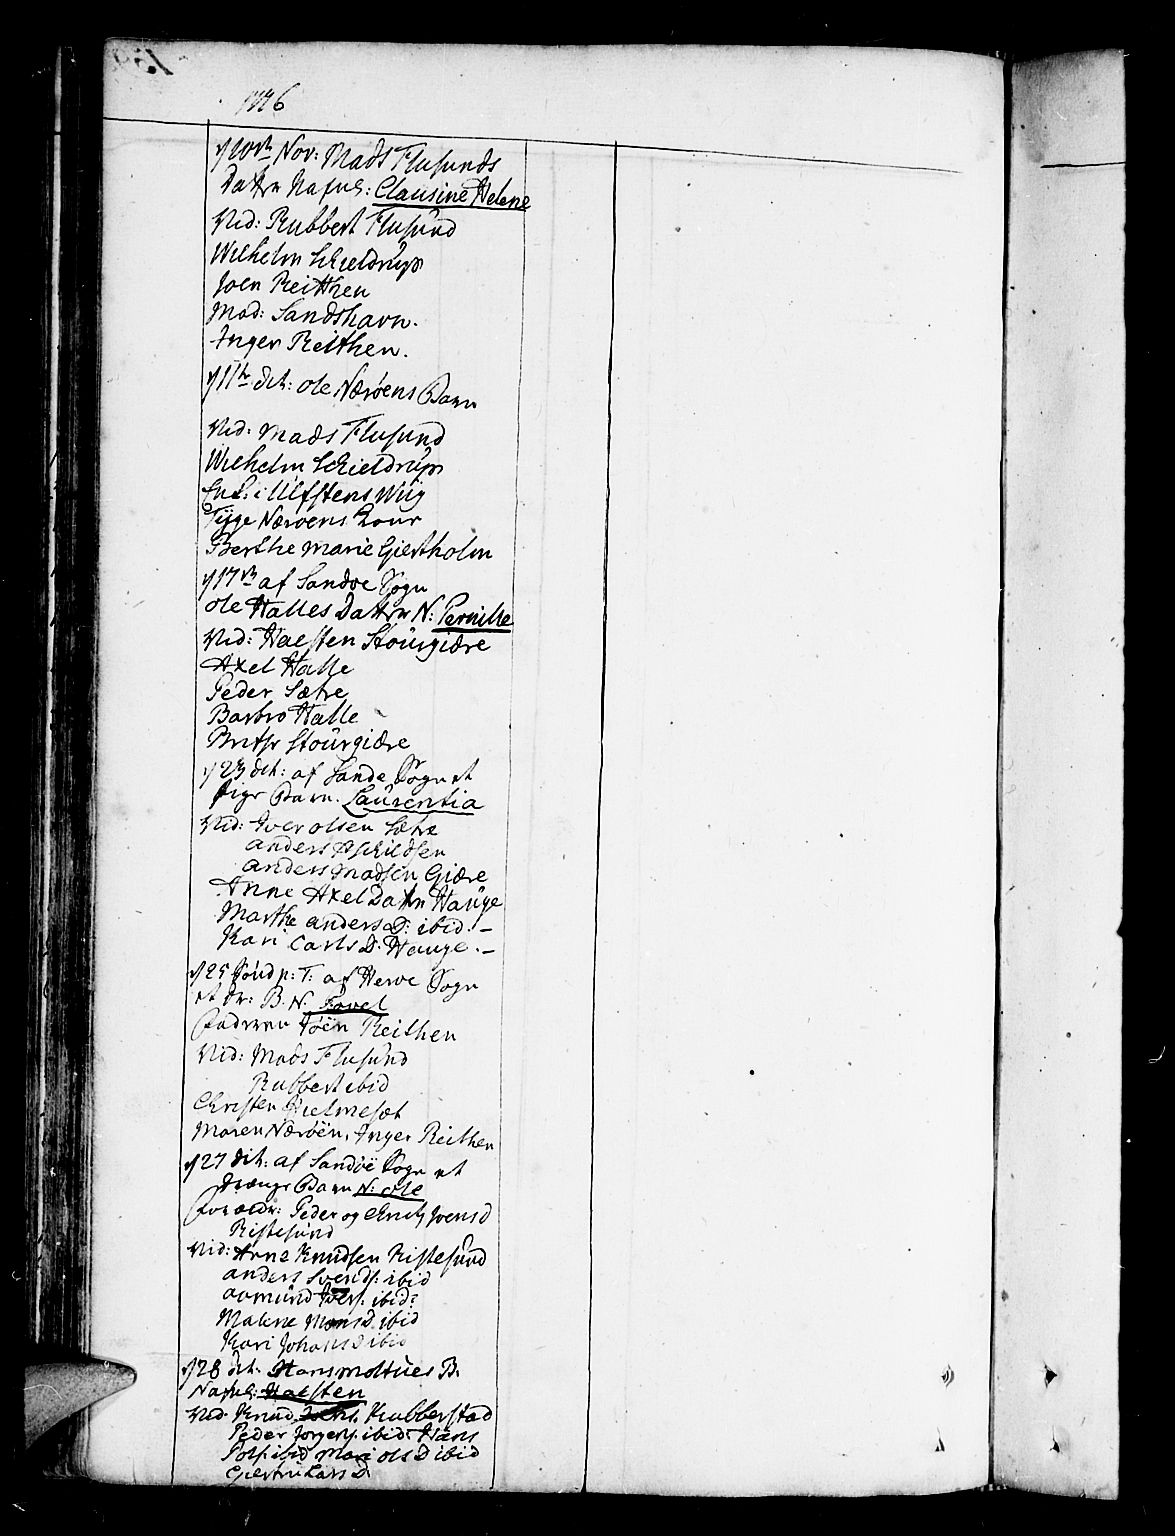 1776
d 10de Nov: Mads Flusunds
Datter Nafnl: Clausine Helene
Vid: Rubbert Flusund
Wilhelm Schieldrup
Joen Reitthen
Mad: Sandshavn.
Inger Reithen.
d 11te dit: ole Nærøens Barn
Vid: Mads Flusund
Wilhelm Schieldrup
i Ulfstens Wiig
Tyge Nærøens Kone
Berthe Marie Giertholm
d 17de af Sandøe Sogn
ole Halles Datter N: Pernille
Vid: Halsten Stoürgiære
Axel Halle
Peder Sætre
Barbro Halle
Stoürgiære
d 23 dit: af Sande Sogn et
Pige Barn. Laurentia
Vid: Iver olsen Sætre
anders
anders Madsen Giære
Anne Axel Datter Hauge
Marthe anders D: ibid. –
Kari Carls D: Hauge. –
d 25 Søndn: T: af Herøe Sogn
et B. N.
Faderen Joen Reithen
Vid: Mads Flusund
Rubbert ibid
Christen Hielmesæt
Maren Nærøen, Inger Reithen
d 27 dit: af Sandøe Sogn et
Drenge Barn N: ole
Forældr: Peder og Joensd
Ristesund
Vid: Arne Knudsen Ristesund
anders Svends: ibid
aamund Ivers: ibid:
Malene Mons D. ibid
Kari Johans D ibid
d 28 dit: Hans Moltues B.
Nafnl: Halsten
Vid: Knud Kubberstad
Peder Jørgens: ibid Hans
Pols: ibid Mari ols D ibid
Lars D